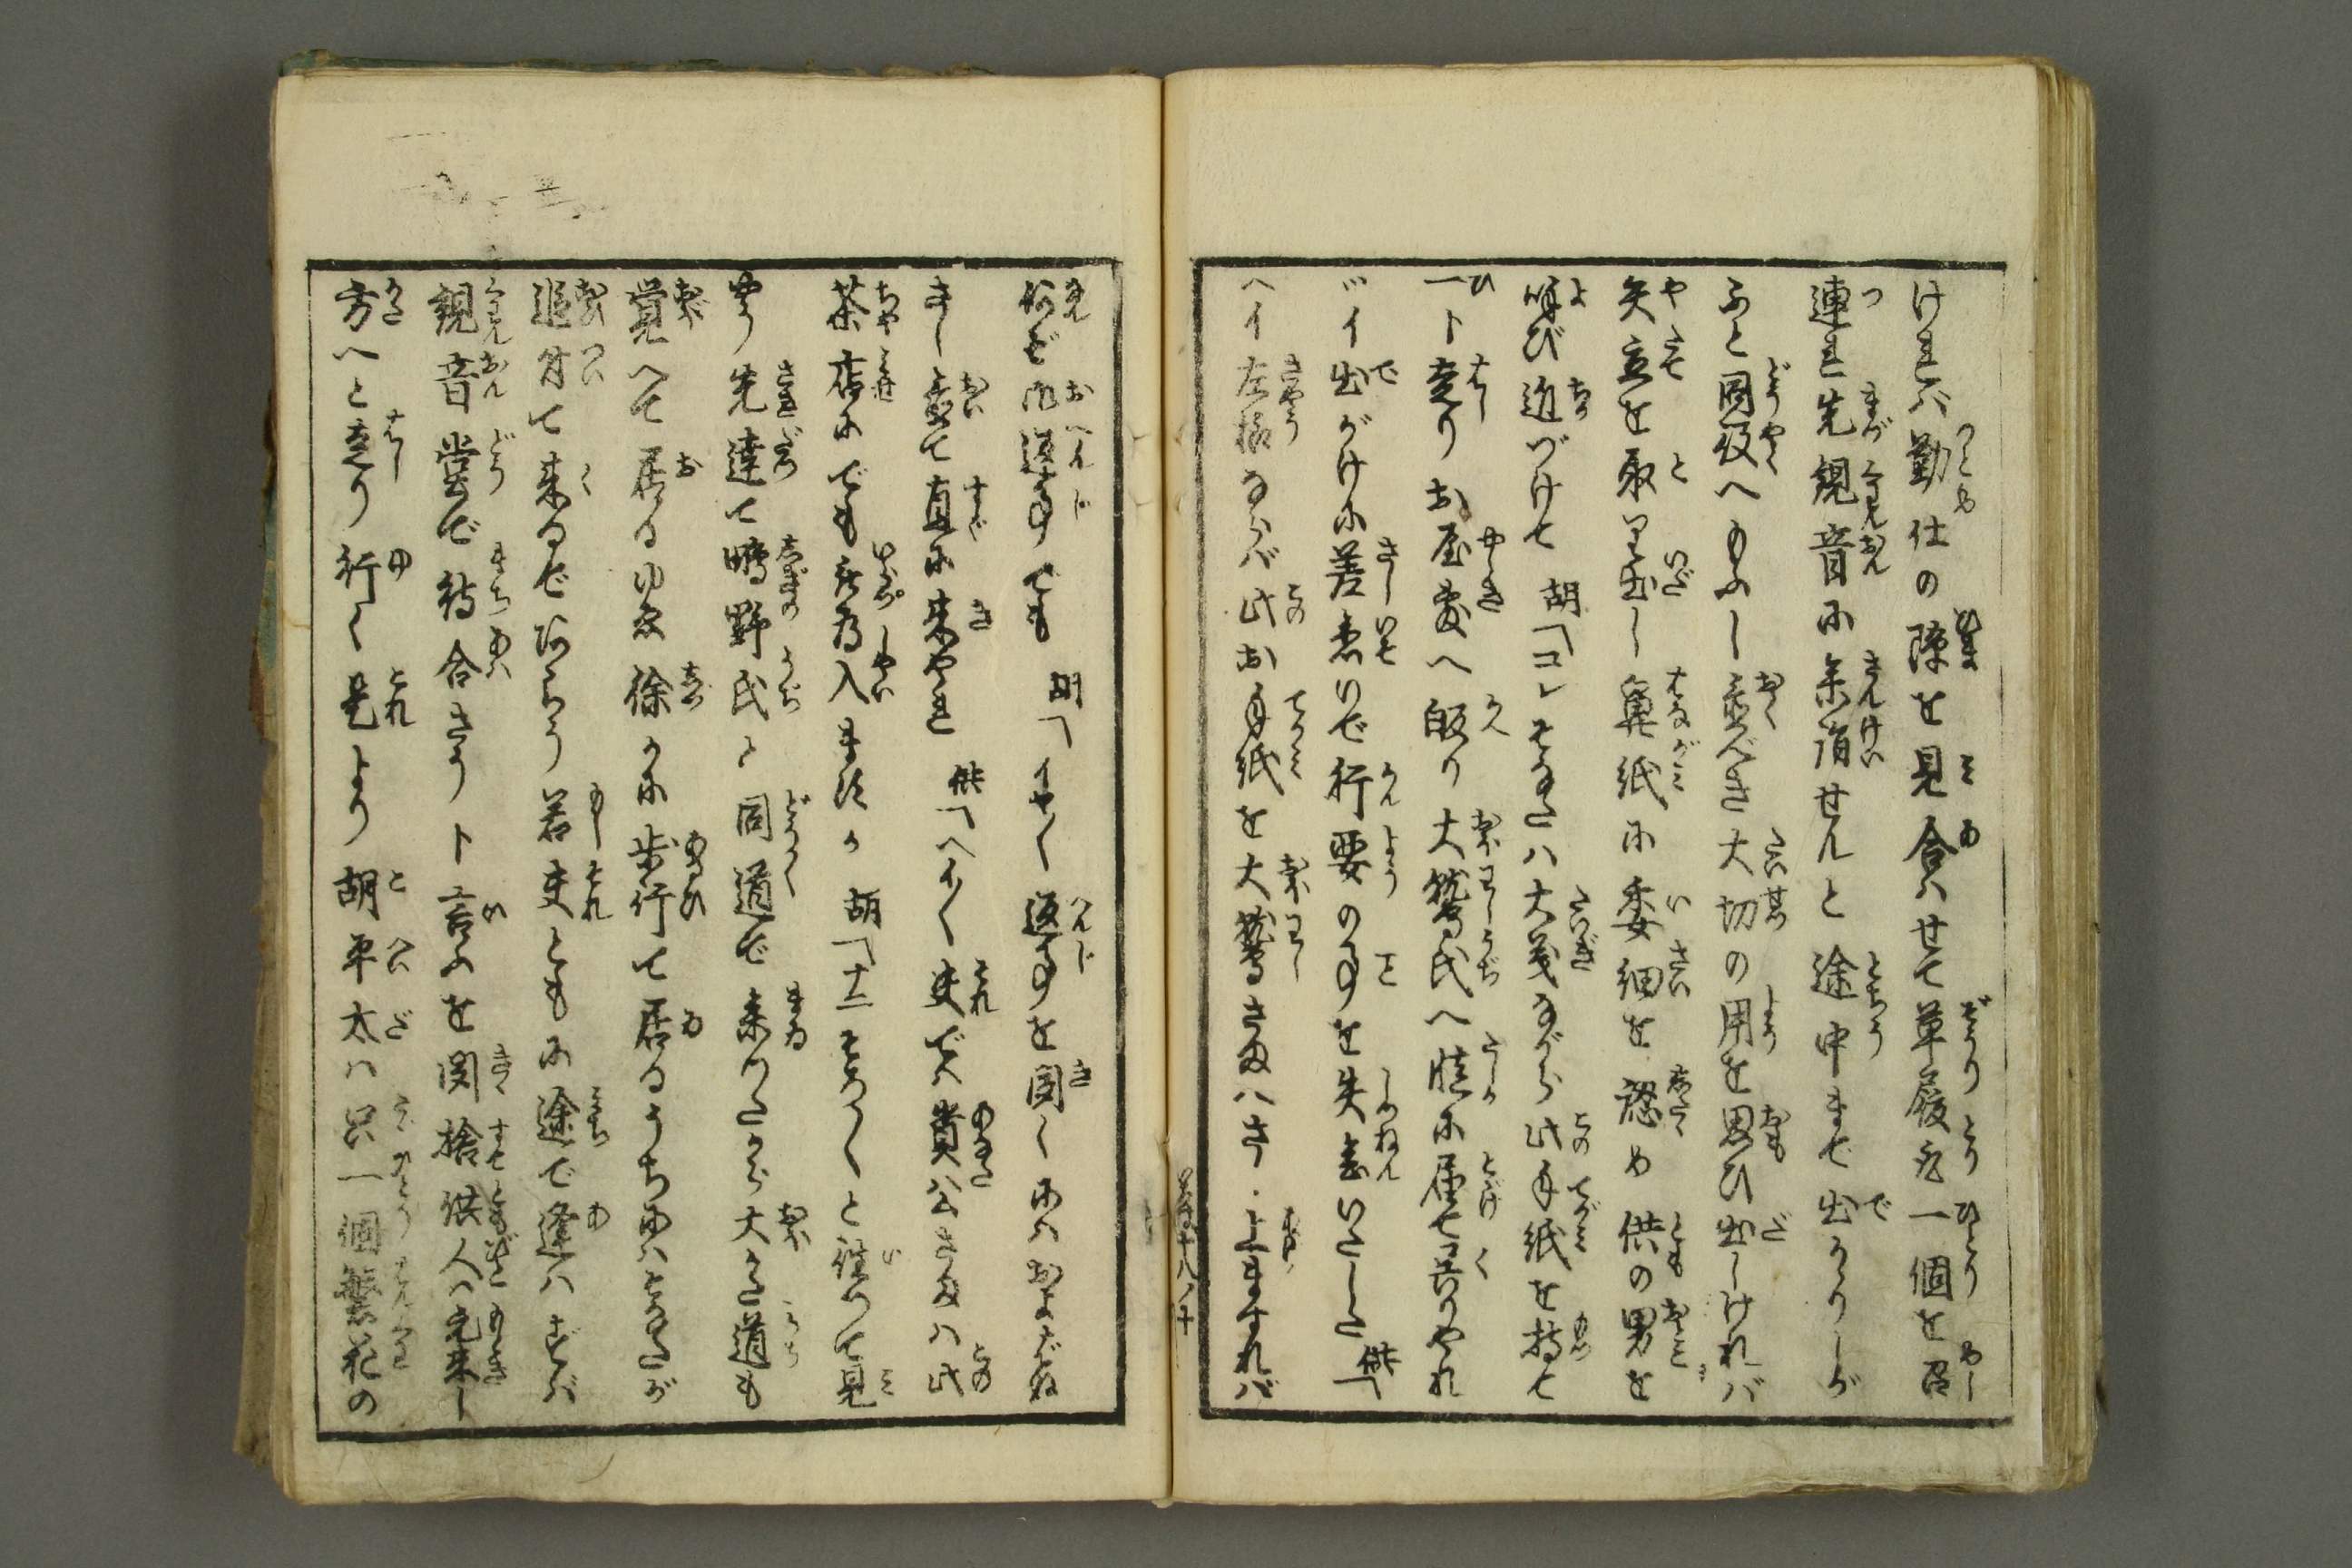 けれバ勤仕の隙を見合ハせて草履取一個を召
連れ先観音に参詣せんと途中まで出かゝりしが
ふと同役へもふし置べき大切の用を思ひ出しけれバ
矢立を取り出し鼻紙に委細を認め供の男を
呼び近づけて 胡「コレそなたハ大義ながら此手紙を持て
一ト走りお屋敷へ皈り大鷲氏へ慥に届て呉りやれ
イ出がけに差急いで行要の事を失念いたした 供「
ヘイ左様ならバ此お手紙を大鷲さまへさし上ますれバ
何ぞ御返事でも 胡「イヤ〳〵返事を聞くにハおよばぬ
さし置て直に来やれ 供「ヘイ〳〵夫でハ貴公さまハ此
茶店にでもお入ますか 胡「ナニそろ〳〵と往つて見
やう先達て鴫野氏と同道で参りたから大かた道も
覚へて居るゆゑ徐かに歩行て居るうちにハそなたが
追付て来るであらう若夫ともに途で逢ハずバ
観音堂で待合さうト言ふを聞捨供人ハ元来し
方へと走り行く是より胡平太ハ只一個繁花の
十八ノ十